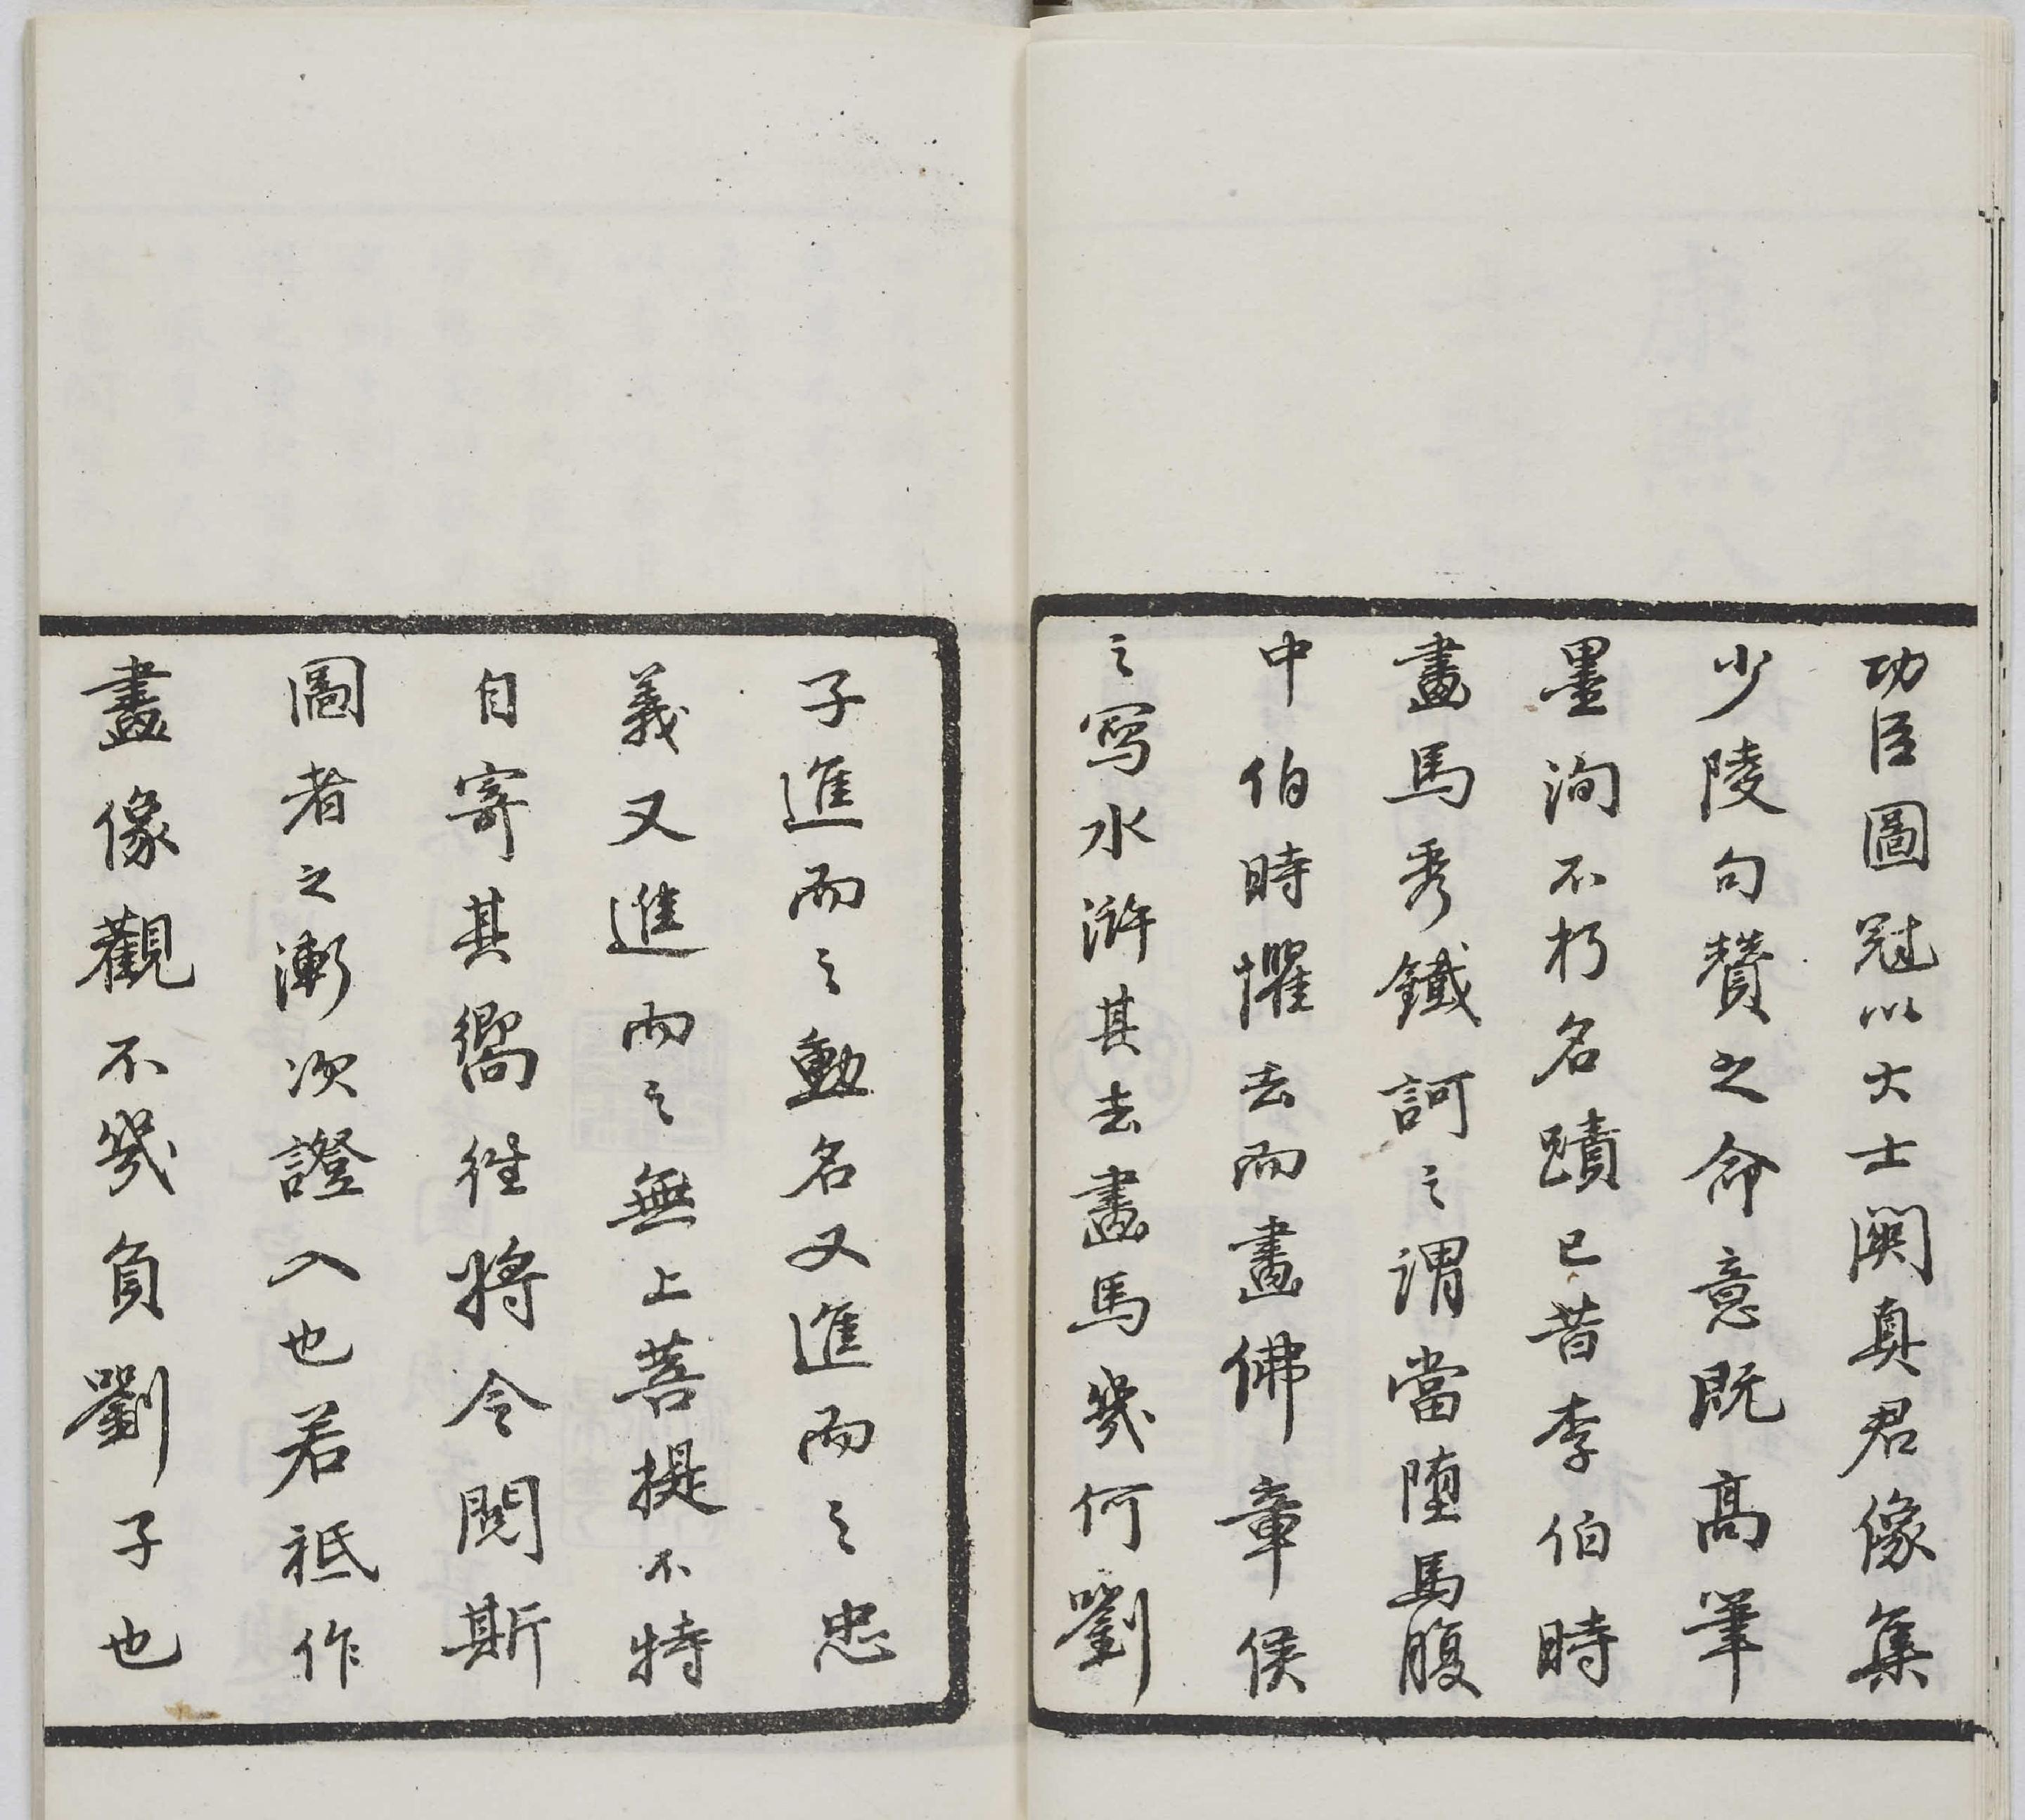 功臣圖冠以大士関真君像集
少陵句贊之命意既高筆
墨洵不朽名蹟已昔李伯時
畫馬秀鐵訶之謂當墮馬腹
中伯時懼去而畫佛章侯
之寫水滸其去畫馬幾何劉
子進而之勳名又進而之忠
義又進而之無上菩提不特
自寄其嚮往將令閱斯
圖者之漸次證入也若祗作
畫像觀不幾負劉子也